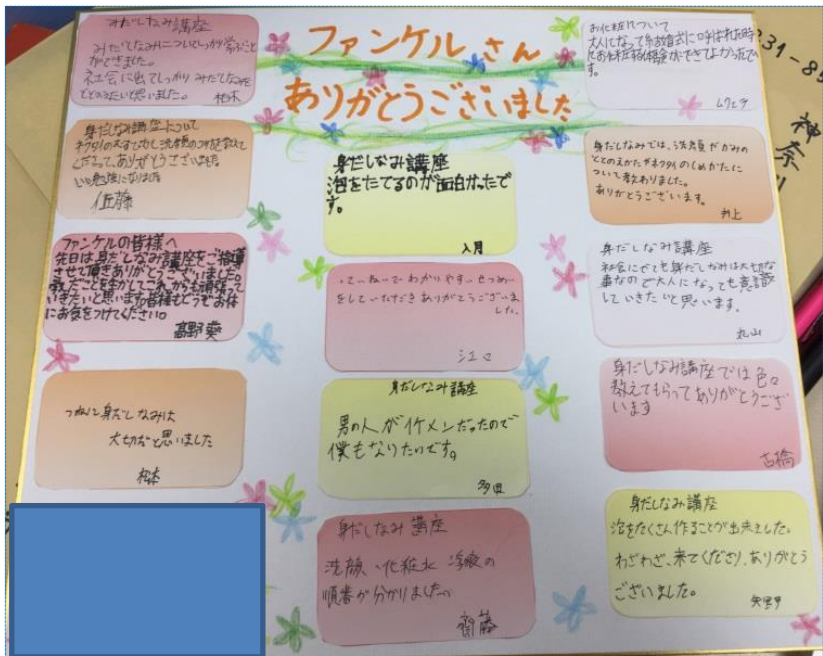 ファンケルさん
ありがとうございました
みだしなみ講座
みだしなみについてしっかり学ぶこと
ができました。
社会に出てしっかりみだしなみを
ととのえたいと思いました。 柏木
身だしなみ講座について
ネクタイの
くださって、ありがとうございました。
いい勉強になりました
佐藤
ファンケルの皆様へ
先日は身だしなみ講座をご指導
させて頂きありがとうございました。
教えたことを生かしてこれからも頑張って
いきたいと思います。皆様もどうぞお体
にお気をつけてください。
高野
つねに身だしなみは
大切だと思いました
松本
身だしなみ講座
泡をたてるのが面白かったで
す。
入月
ていねいでわかりやすいせつめい
をしていただきありがとうございま
した。
身だしなみ講座
男の人がイケメンだったので
僕もなりたいです。
多田
身だしなみ講座
洗顔、化粧水
順番が分かりました。
齋藤
お化粧について
大人になって結婚式に呼ばれた時
にお化粧体験ができてよかったで
す。
身だしなみでは、洗顔やかみの
ととのえかたやネクタイのしめかたに
ついて教わりました。
ありがとうございます。
井上
身だしなみ講座
社会にでても身だしなみは大切な
事なので大人になっても意識
していきたいと思います。
丸山
身だしなみ講座では色々
教えてもらってありがとうござ
います
古橋
身だしなみ講座
泡をたくさん作ることが出来ました。
わざわざ、来てくださり、ありがとう
ございました。
231-85
神奈川